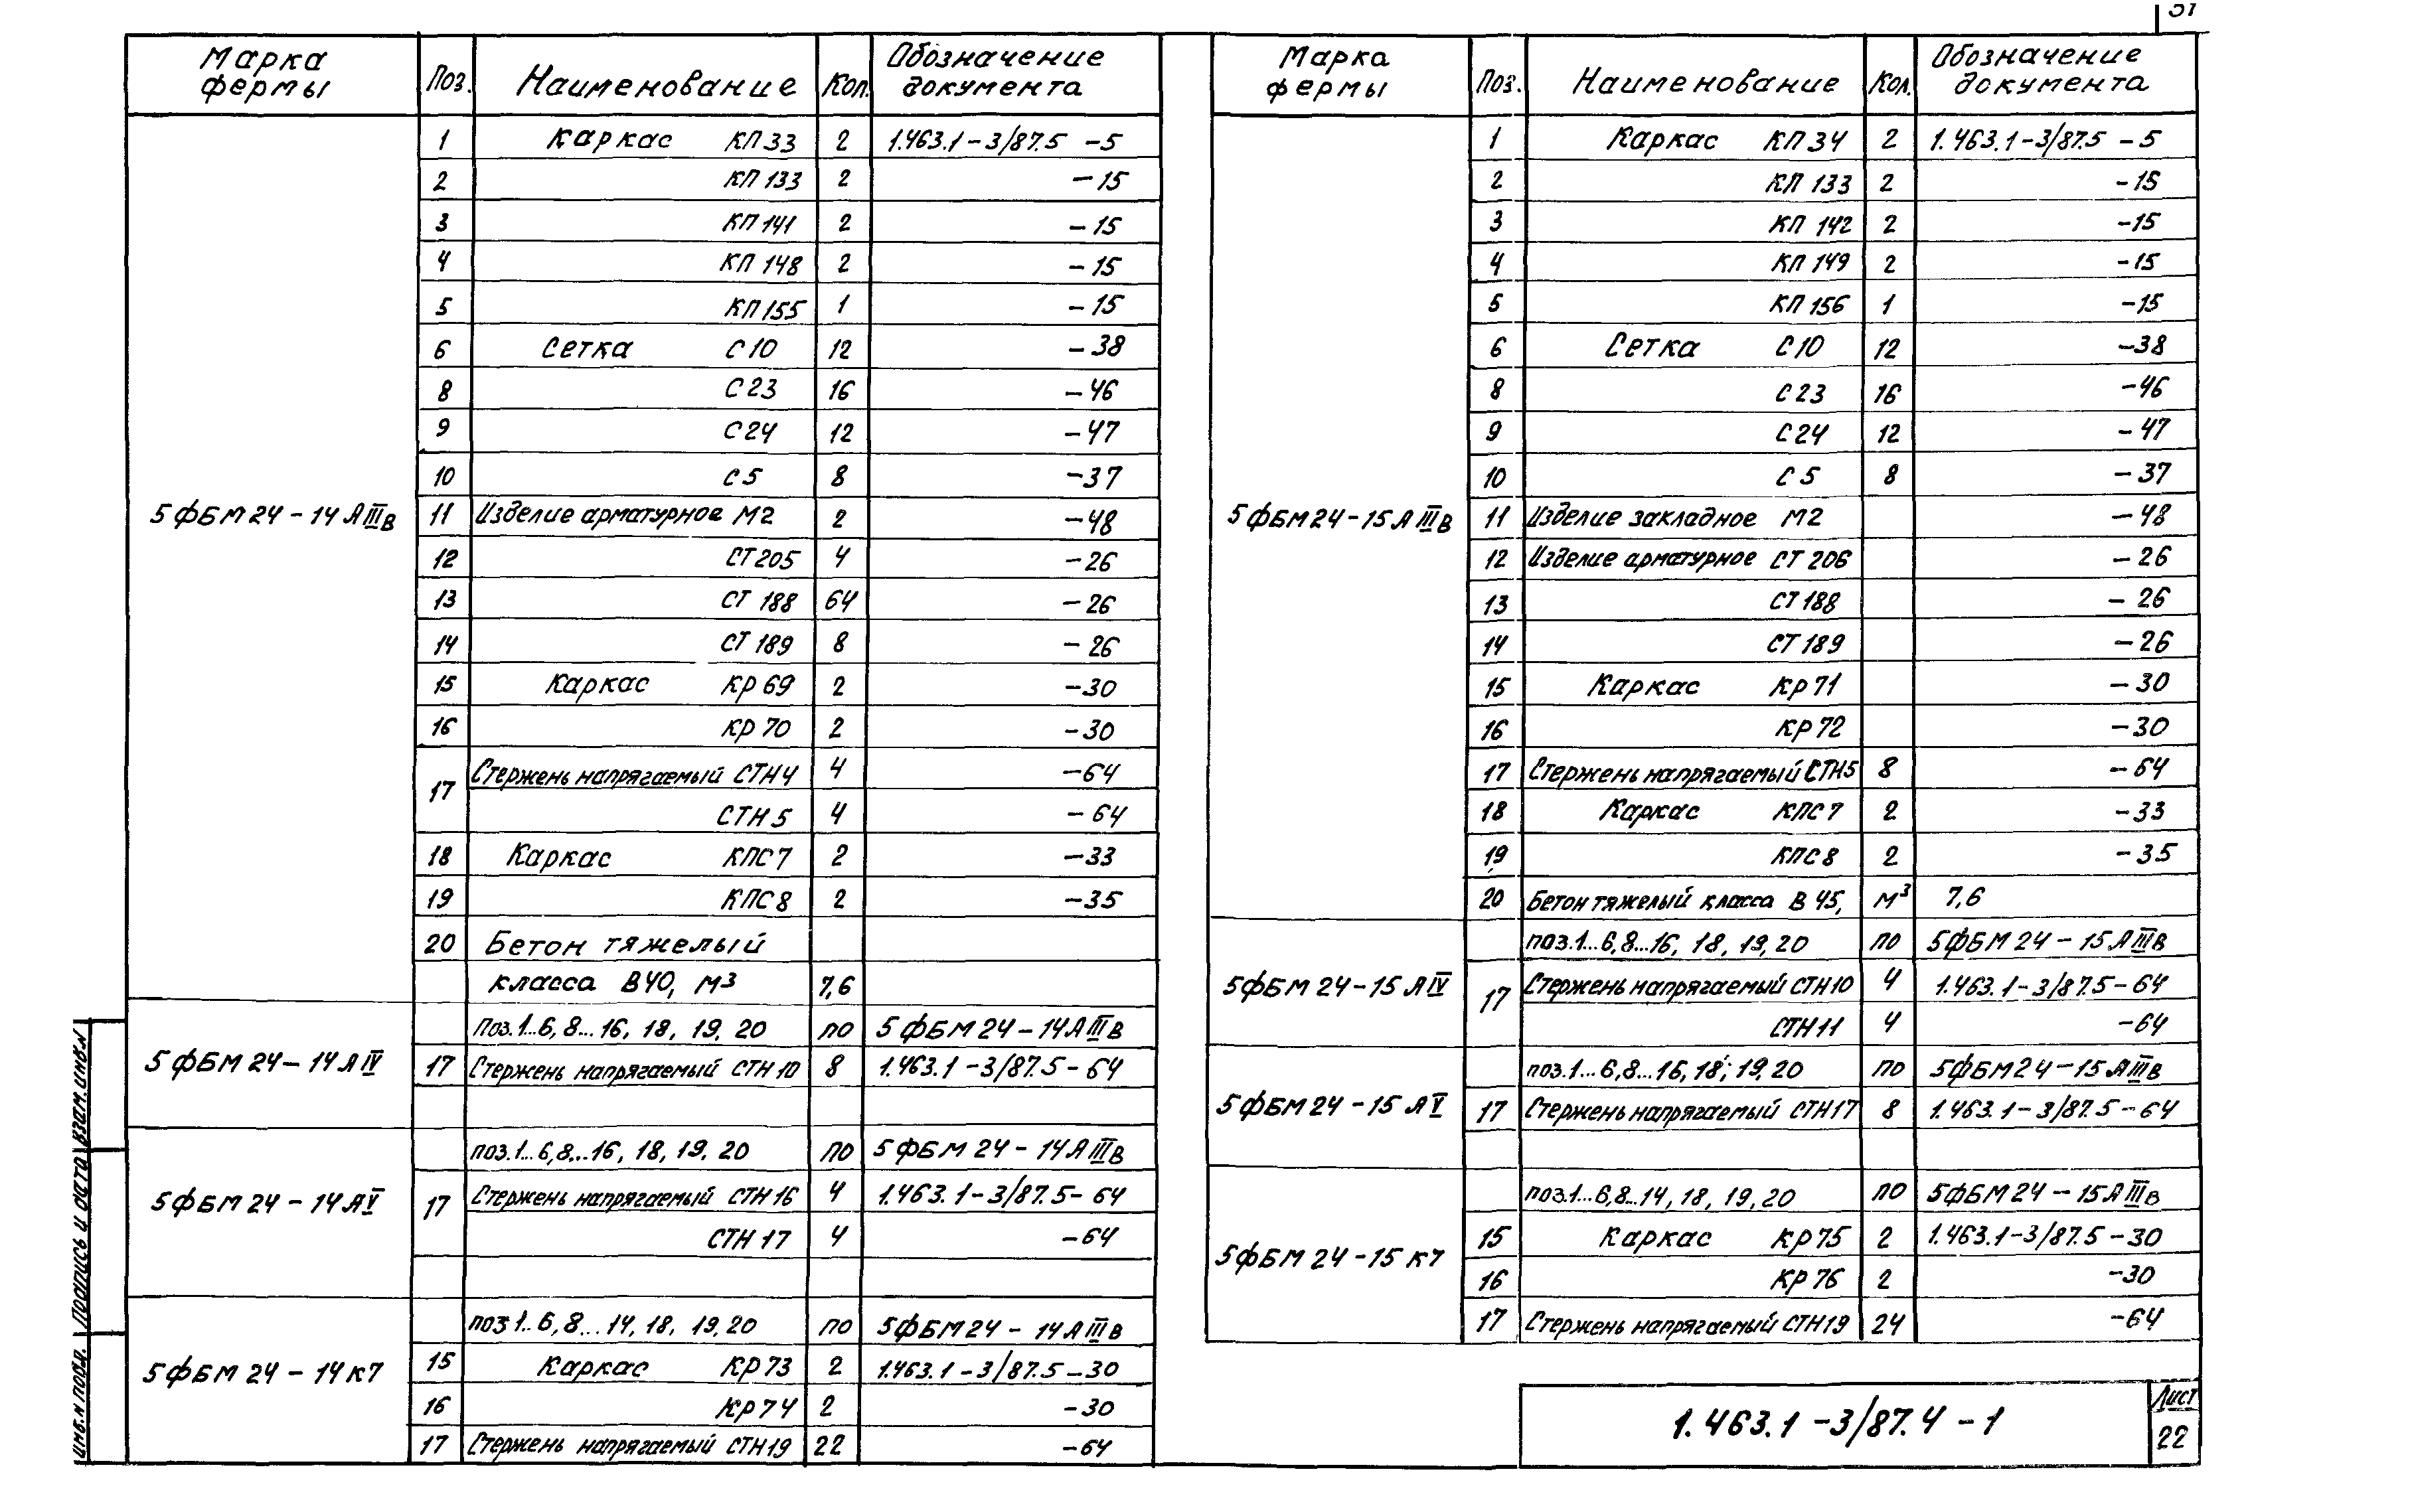 Марка фермы Поз. Наименование Кол. Обозначение документа
5ФБМ24-14АIIIв
1 Каркас КП33 2 1.463.1-3/87.5 -5
2 КП133 2 -15
3 КП141 2 -15
4 КП148 2 -15
5 КП155 1 -15
6 Сетка С10 12 -38
8 С23 16 -46
9 С24 12 -47
10 С5 8 -37
11 Изделие арматурное М2 2 -48
12 СТ205 4 -26
13 СТ188 64 -26
14 СТ189 8 -26
15 Каркас КР69 2 -30
16 КР70 2 -30
17 Стержень напрягаемый СТН4 4 -64
СТН5 4 -64
18 Каркас КПС7 2 -33
19 КПС8 2 -35
20 Бетон тяжелый
класса В40, м3 7,6
5ФБМ24-14АIV
поз.1...6,8...16, 18, 19, 20 по 5ФБМ24-14АIIIв
17 Стержень напрягаемый СТН10 8 1.463.1-3/87.5-64
5ФБМ24-14АV
поз.1...6,8...16, 18, 19, 20 по 5ФБМ24-14АIIIв
17 Стержень напрягаемый СТН16 4 1.463.1-3/87.5-64
СТН17 4 -64
5ФБМ24-14К7
поз1..6,8...14, 18, 19, 20 по 5ФБМ24-14АIIIв
15 Каркас КР73 2 1.463.1-3/87.5-30
16 КР74 2 -30
17 Стержень напрягаемый СТН19 22 -64
Марка фермы Поз. Наименование Кол. Обозначение документа
5ФБМ24-15АIIIв
1 Каркас КП34 2 1.463.1-3/87.5 -5
2 КП133 2 -15
3 КП142 2 -15
4 КП149 2 -15
5 КП156 1 -15
6 Сетка С10 12 -38
8 С23 16 -46
9 С24 12 -47
10 С5 8 -37
11 Изделие закладное М2 -48
12 Изделие арматурное СТ206 -26
13 СТ188 -26
14 СТ189 -26
15 Каркас КР71 -30
16 КР72 -30
17 Стержень напрягаемый СТН5 8 -64
18 Каркас КПС7 2 -33
19 КПС8 2 -35
20 Бетон тяжелый класса В45, м3 7,6
5ФБМ24-15АIV
поз.1...6,8...16, 18, 19, 20 по 5ФБМ24-15АIIIв
17 Стержень напрягаемый СТН10 4 1.463.1-3/87.5-64
СТН11 4 -64
5ФБМ24-15АV
поз.1...6,8...16, 18, 19, 20 по 5ФБМ24-15АIIIв
17 Стержень напрягаемый СТН17 8 1.463.1-3/87.5-64
5ФБМ24-15К7
поз.1...6,8...14, 18, 19, 20 по 5ФБМ24-15АIIIв
15 Каркас КР75 2 1.463.1-3/87.5-30
16 КР76 2 -30
17 Стержень напрягаемый СТН19 24 -64
1.463.1-3/87.4-1
Лист
22
Инв.N подл. Подпись и дата Взам.инв.N